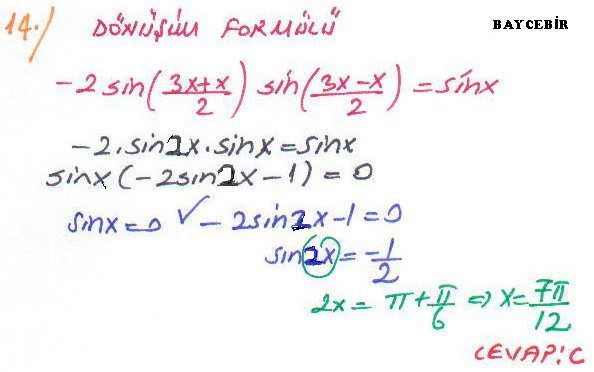 14.) DÖNÜŞÜM FORMÜLÜ
BAY CEBİR
-2 sin(3x+x/2) sin(3x-x/2) = sinx
-2.sin2x.sinx=sinx
sinx(-2sin2x-1)=0
sinx=0 ✓ -2sin2x-1=0
sin2x=-1/2
2x= π+π/6 ⇒ x=7π/12
CEVAP:C